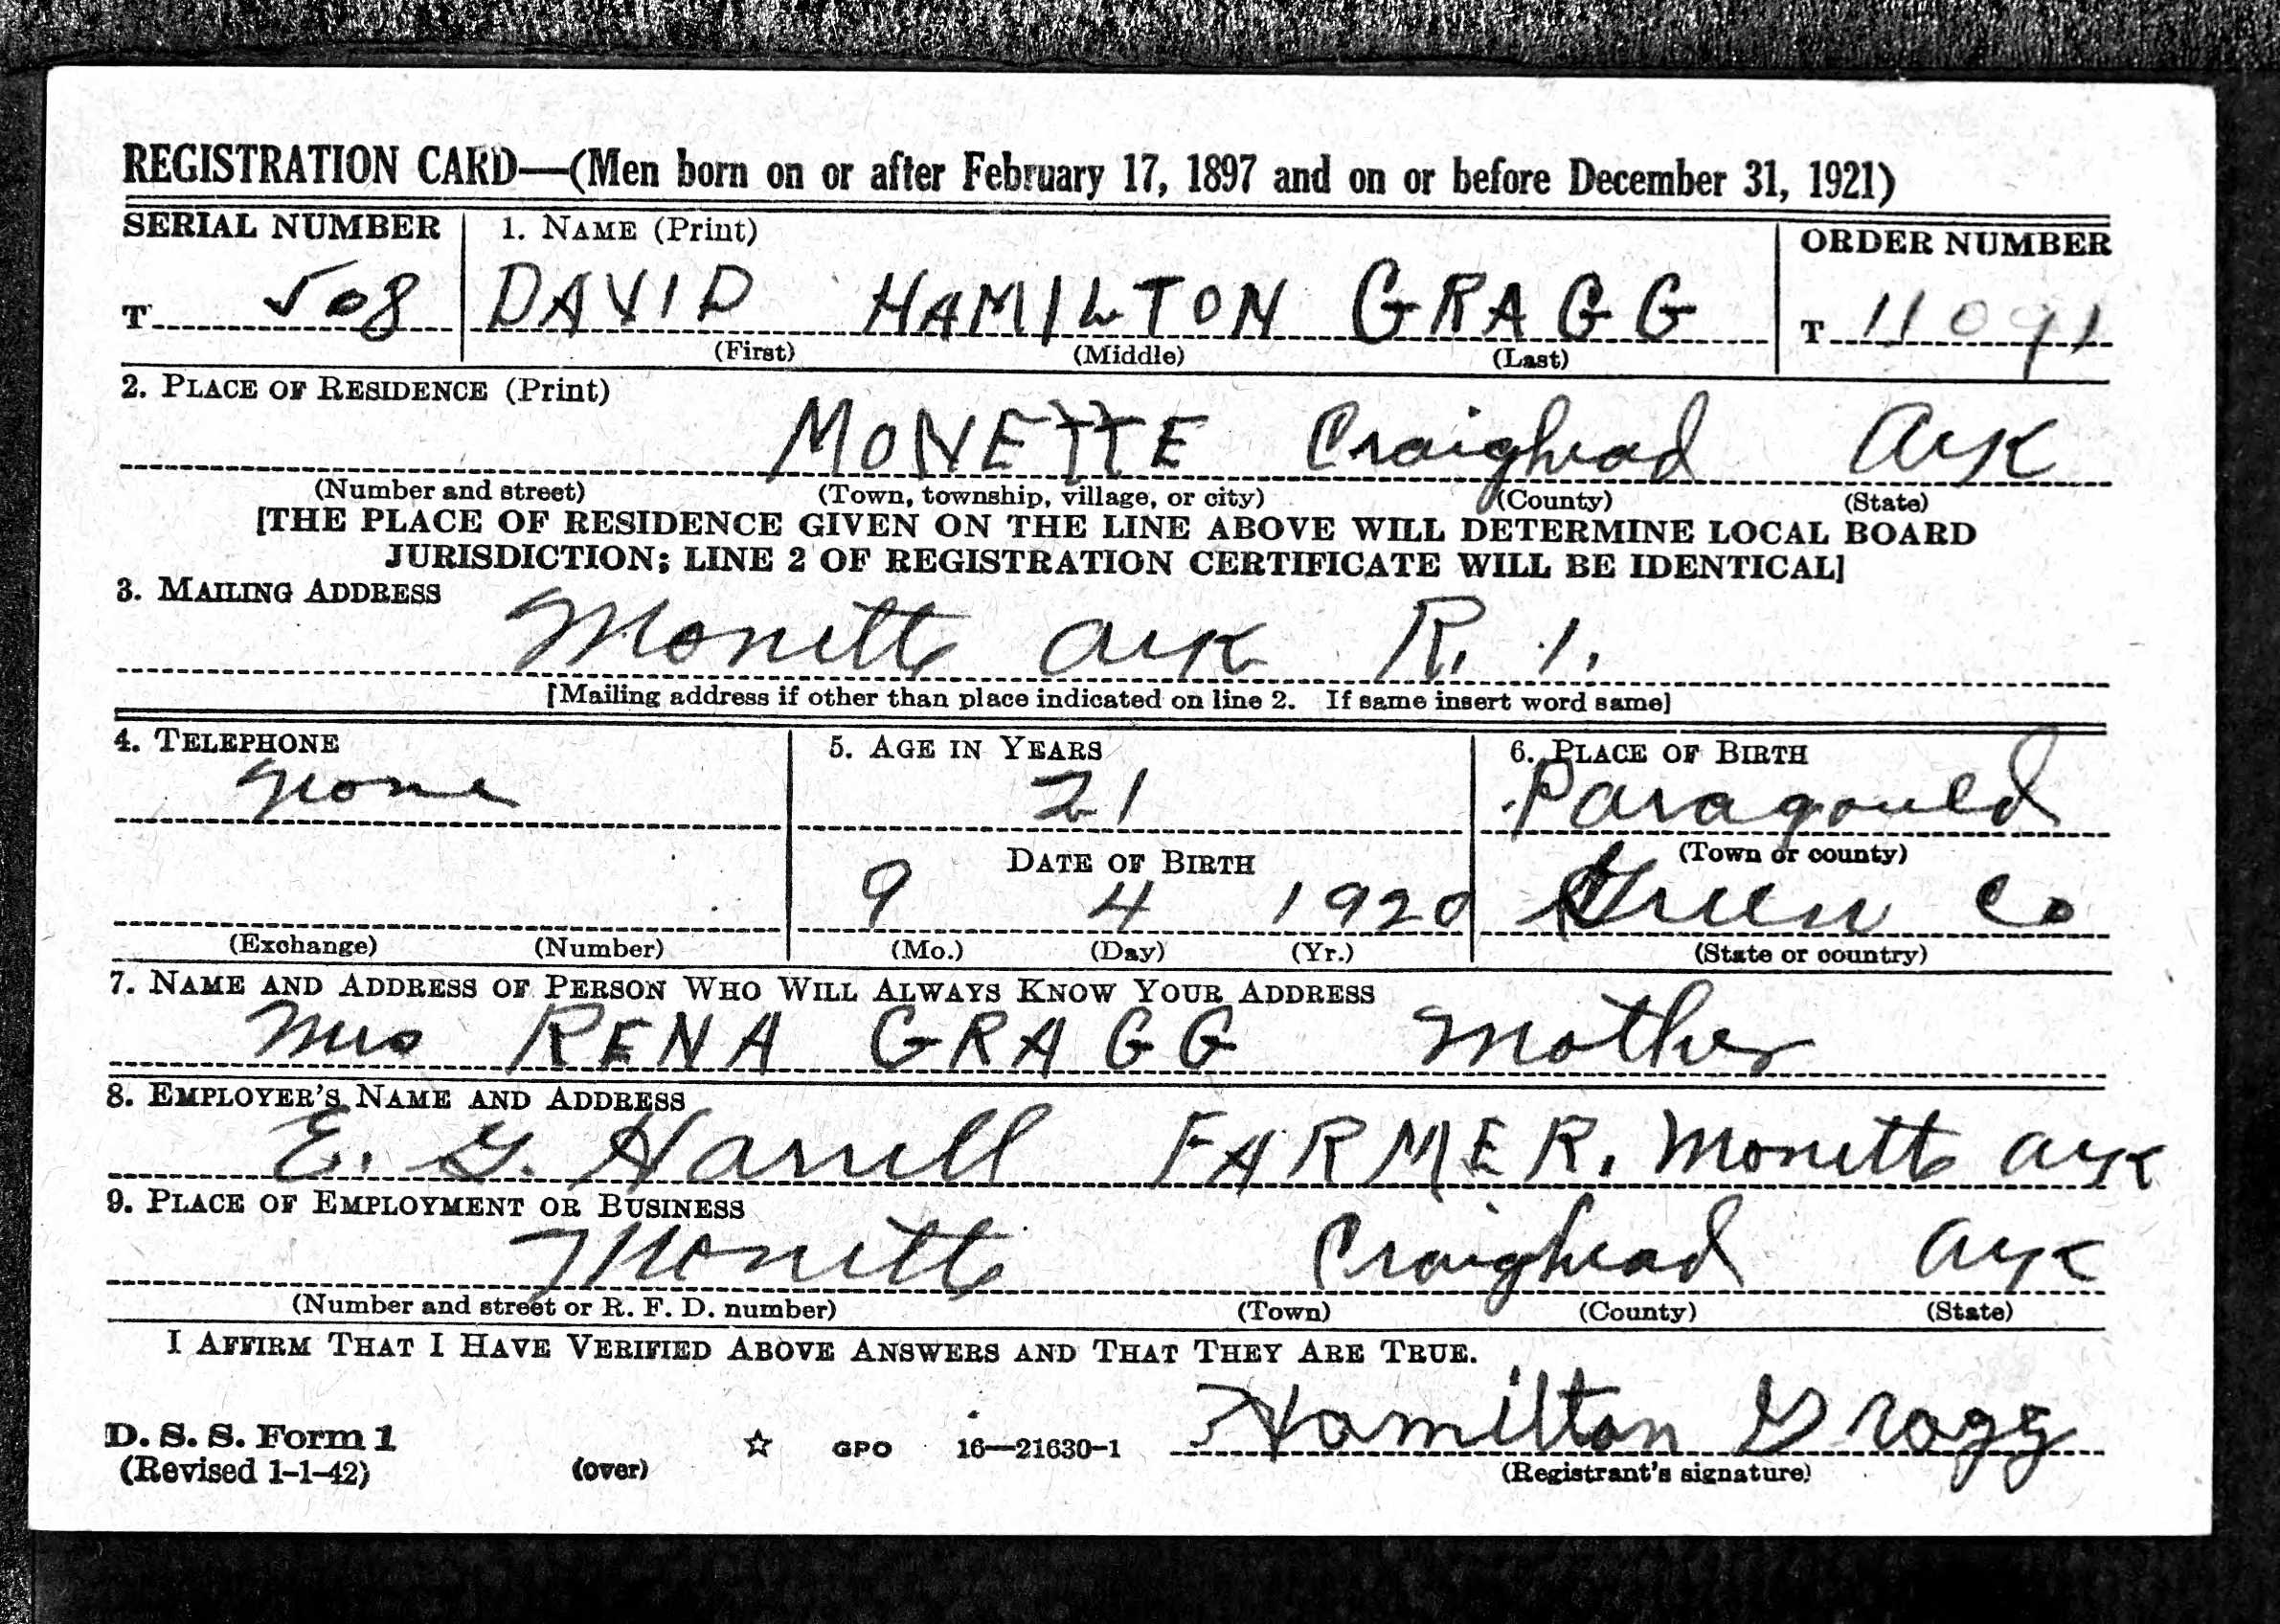 REGISTRATION CARD—(Men born on or after February 17, 1897 and on or before December 31, 1921)
SERIAL NUMBER 1. NAME (Print) ORDER NUMBER
T 508 DAVID HAMILTON GRAGG T 11091
(First) (Middle) (Last)
2. PLACE OF RESIDENCE (Print)
MONETTE Craighead Ark
(Number and street) (Town, township, village, or city) (County) (State)
[THE PLACE OF RESIDENCE GIVEN ON THE LINE ABOVE WILL DETERMINE LOCAL BOARD
JURISDICTION; LINE 2 OF REGISTRATION CERTIFICATE WILL BE IDENTICAL]
3. MAILING ADDRESS
Monette Ark R. 1.
[Mailing address if other than place indicated on line 2. If same insert word same]
4. TELEPHONE 5. AGE IN YEARS 6. PLACE OF BIRTH
None 21 Paragould
DATE OF BIRTH (Town or county)
9 4 1920 Green Co
(Exchange) (Number) (Mo.) (Day) (Yr.) (State or country)
7. NAME AND ADDRESS OF PERSON WHO WILL ALWAYS KNOW YOUR ADDRESS
Mrs RENA GRAGG Mother
8. EMPLOYER'S NAME AND ADDRESS
E. G. Harrell FARMER. Monette Ark
9. PLACE OF EMPLOYMENT OR BUSINESS
Monette Craighead Ark
(Number and street or R. F. D. number) (Town) (County) (State)
I AFFIRM THAT I HAVE VERIFIED ABOVE ANSWERS AND THAT THEY ARE TRUE.
Hamilton Gragg
D. S. S. Form 1
(Revised 1-1-42) (over) ☆ GPO 16—21630-1 (Registrant's signature)